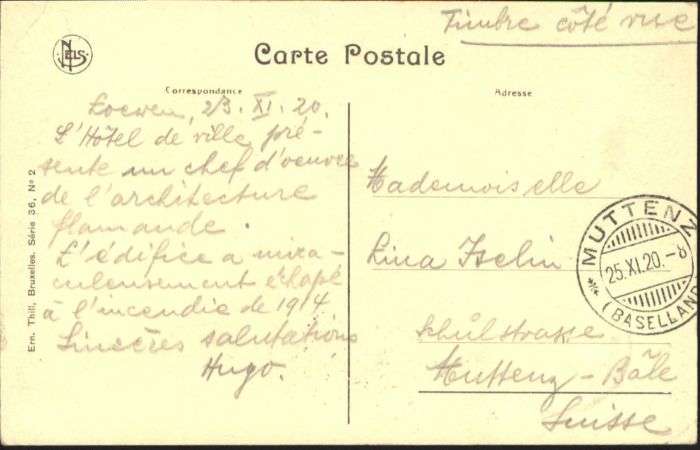 Timbre côté vue
NELS
Carte Postale
Correspondance
Adresse
Loewen, 2/3. XI. 20.
L'Hôtel de ville pré-
sente un chef d'oeuvre
de l'architecture
flamande.
L'édifice a mira-
culeusement échapé
à l'incendie de 1914
Sincères salutations
Hugo.
Mademoiselle
Lina Iselin
Schülstrasse
Muttenz-Bâle
Suisse
MUTTENZ
25.XI.20.-8
(BASELLAND)
Ern. Thill, Bruxelles. Série 36, No 2